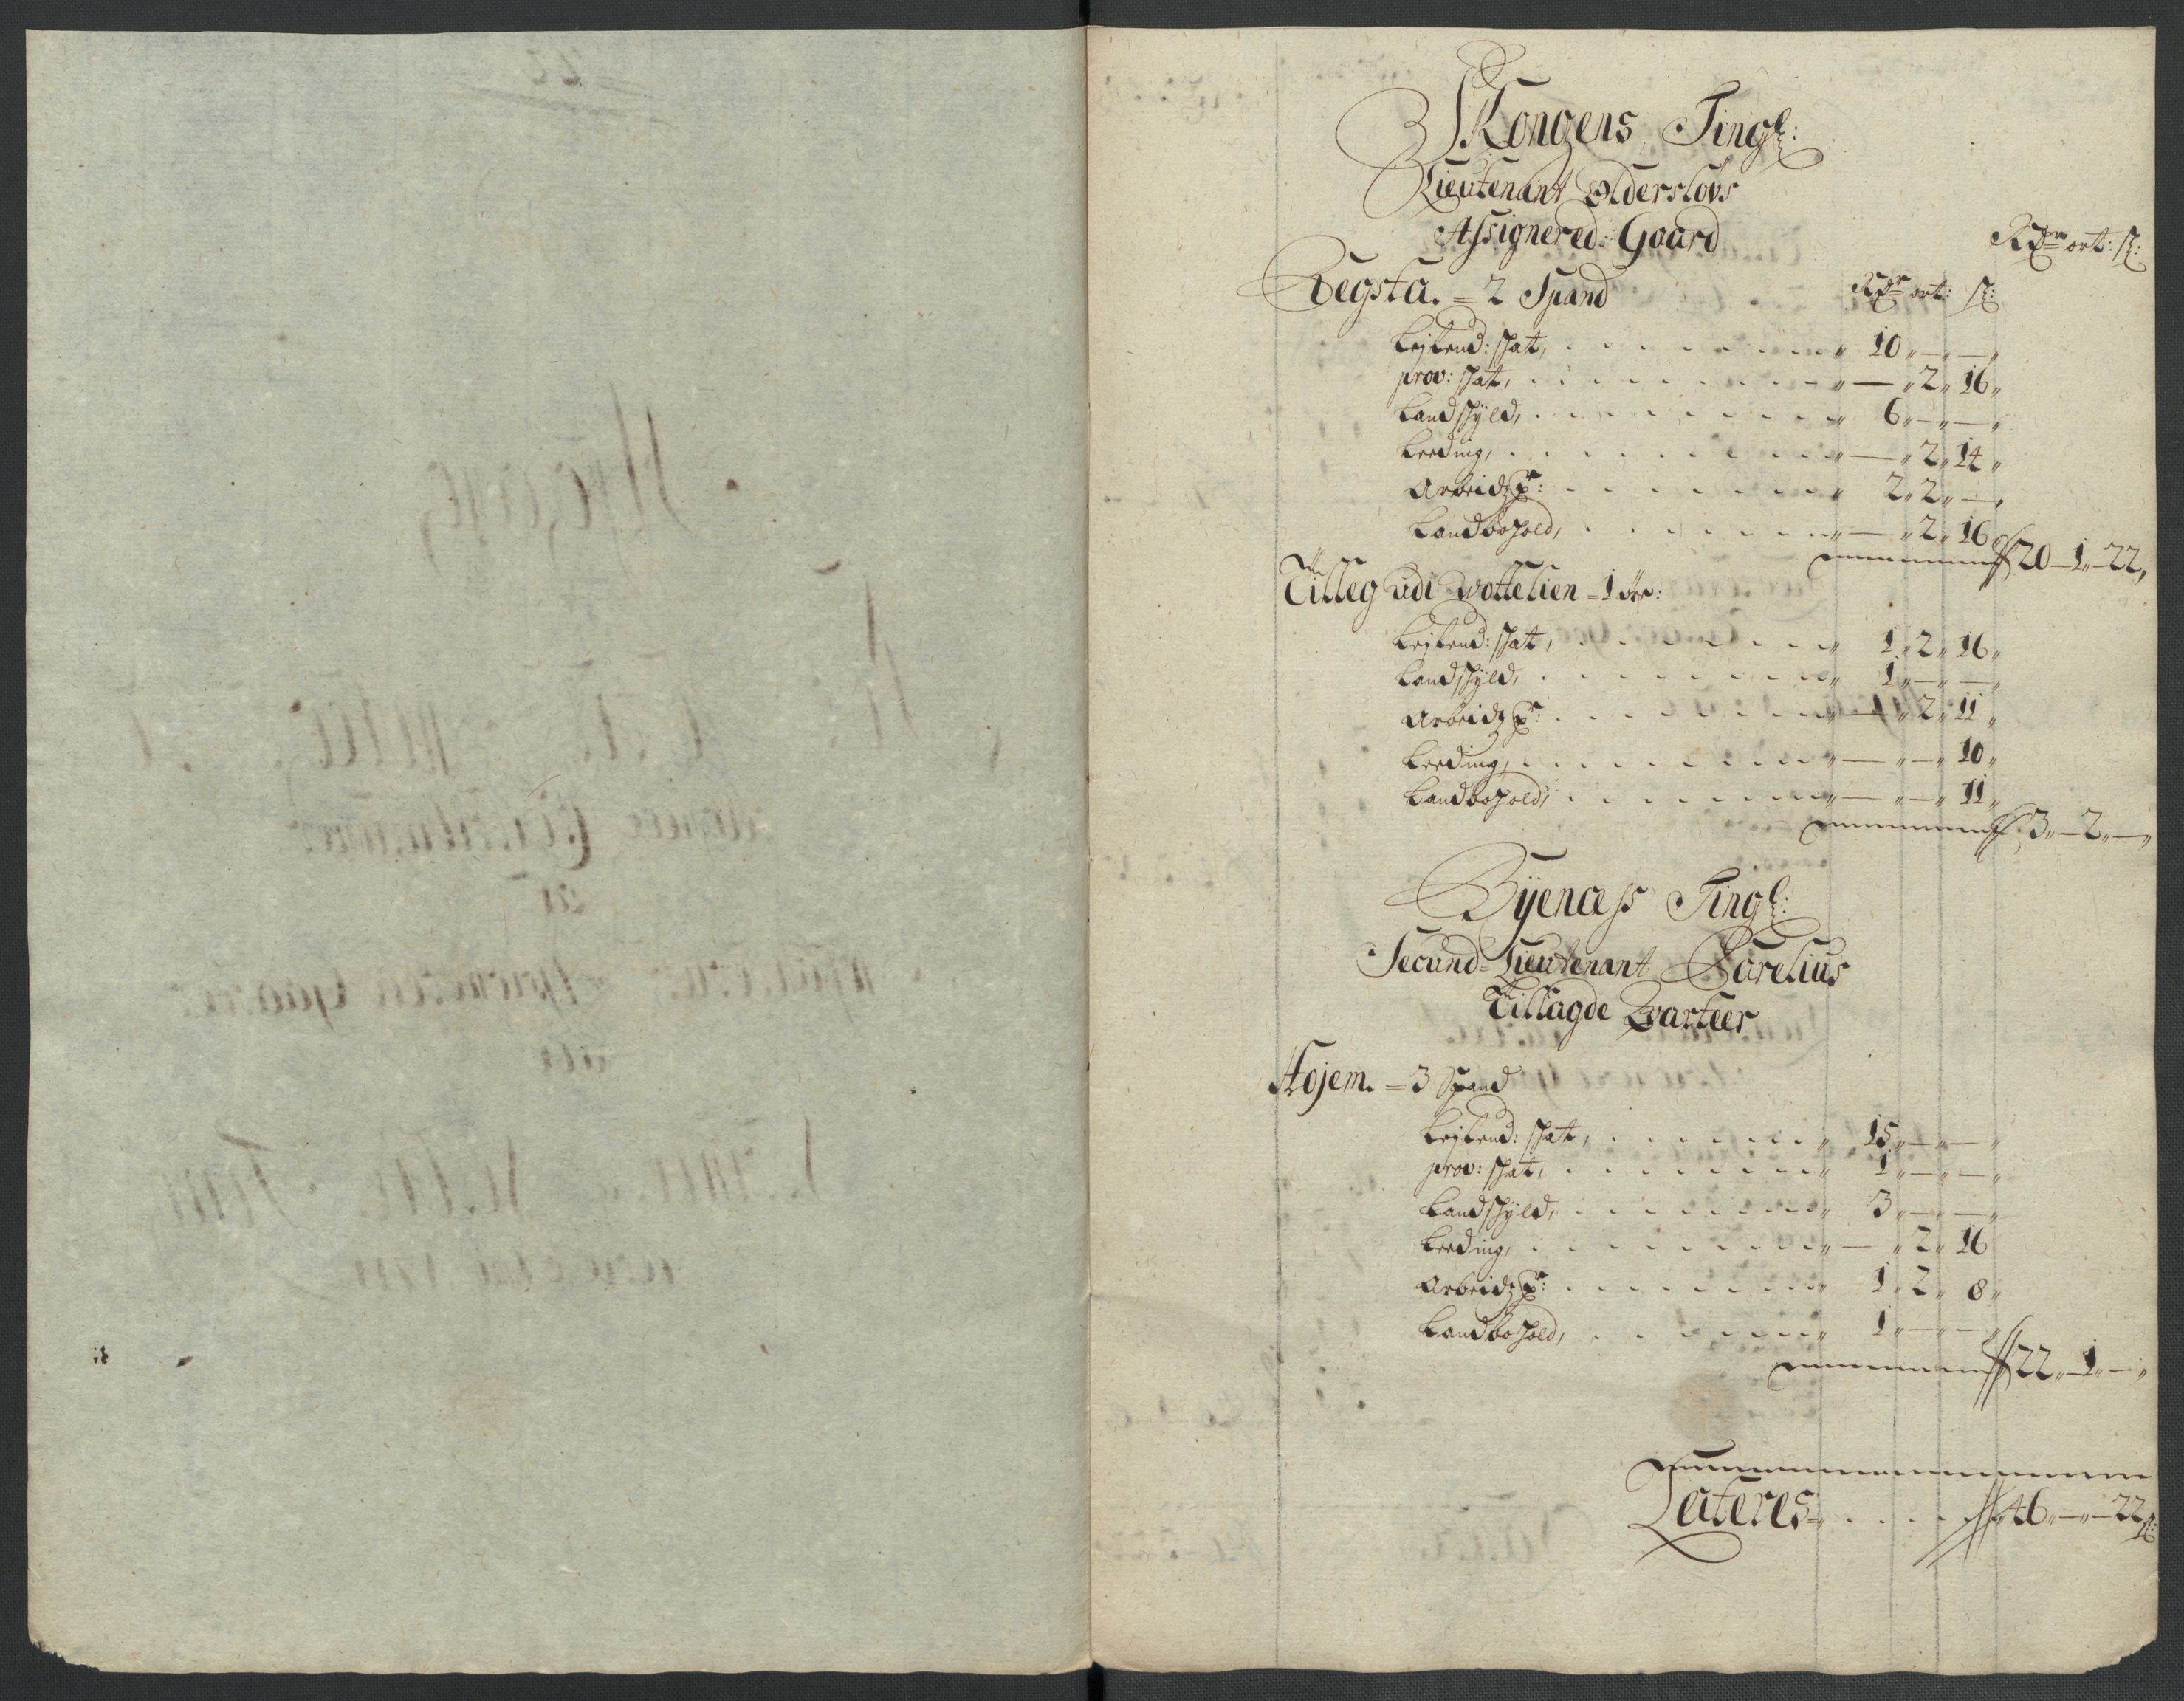 Kongens Tingl:
Lieutenant Olderslovs
Assignered Gaard
Rdr ort: s:
Begsta. = 2 Spand
Rdr ort: s:
Leylend: skat, 10 „ — „ — „
prov: skat, — „ 2 „ 16 „
Landskyld, 6 „ — „ — „
Leeding, — „ 2 „ 14 „
Arbeidz p: 2 „ 2 „ — „
Landbohold, — „ 2 „ 16
20 — 1 „ — 22 „
Tilleg udi = 1 ør:
Leylend: skatt, 1 „ 2 „ 16 „
Landskyld, 1 „ — „ — „
Arbeidz p: — „ 2 „ 11 „
Leeding, — „ — „ 10 „
Landbohold, — „ — „ 11 „
3 „ — 2 „ — „
Byenæss Tingl:
Secund = Lieutenant
Tillagde Qvarteer
= 3 Spand
Leylend: skat, 15 „ — „ — „
prov: skat, 1 „ — „ — „
Landskyld, 3 „ — „ — „
Leeding, — „ 2 „ 16
Arbeidz p: 1 „ 2 „ 8 „
Landbohold, 1 „ — „ — „
22 „ — 1 „ — „
Lateres 46 „ — „ — 22 s: